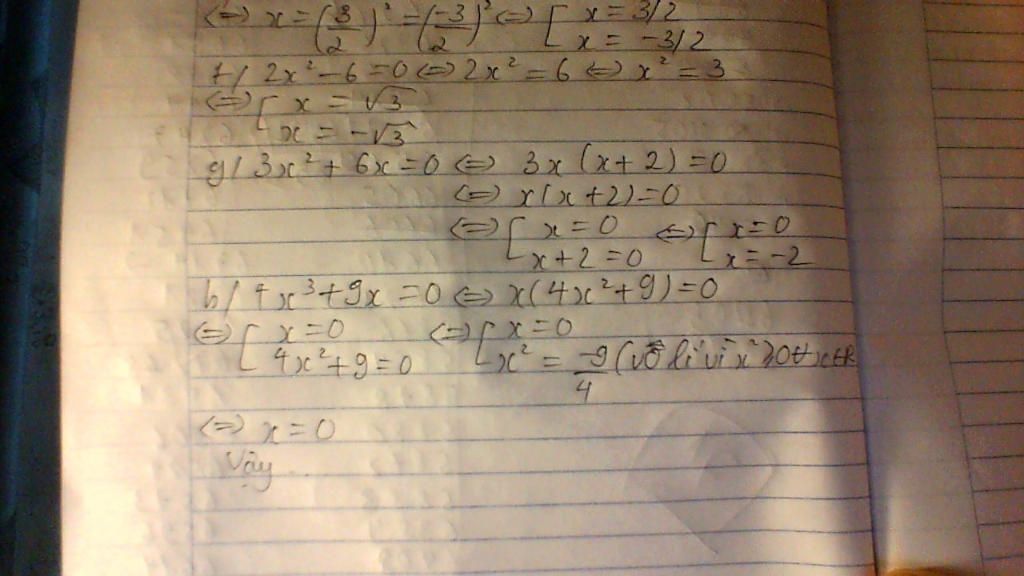 ⇔ x = (3/2)² = (-3/2)² ⇔ [ x = 3/2
x = -3/2
f/ 2x² - 6 = 0 ⇔ 2x² = 6 ⇔ x² = 3
⇔ [ x = √3
x = -√3
g/ 3x² + 6x = 0 ⇔ 3x (x + 2) = 0
⇔ x(x + 2) = 0
⇔ [ x = 0 ⇔ [ x = 0
x + 2 = 0 x = -2
h/ 4x³ + 9x = 0 ⇔ x(4x² + 9) = 0
⇔ [ x = 0 ⇔ [ x = 0
4x² + 9 = 0 x² = -9/4 (vô lí vì x² ≥ 0 ∀ x ∈ R
⇔ x = 0
Vậy ..